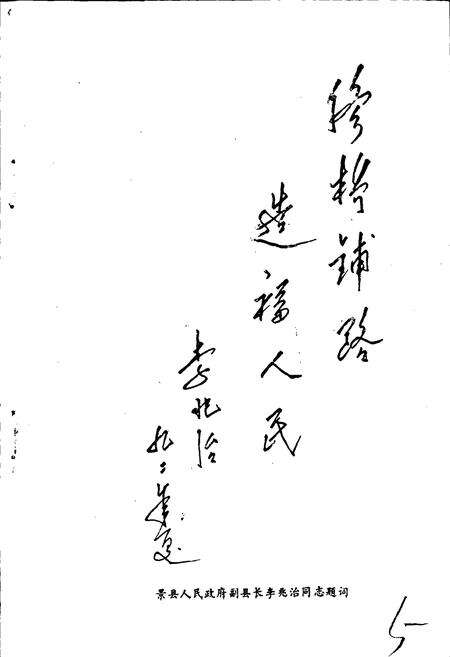 修桥铺路
造福人民
李兆治
九二年夏
景县人民政府副县长李兆治同志题词
5